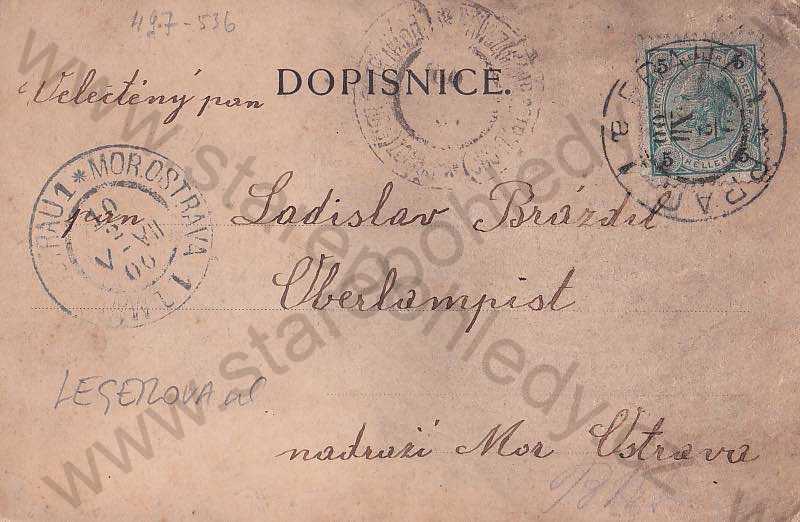 497-536
DOPISNICE.
Velectěný pan
pan Ladislav Brázdil
Oberlampist
LEGEROVA ul
nadraží Mor Ostrava
MOR.OSTRAVA 1
5 5
HELLER
PRAG
www.starepohledy.cz